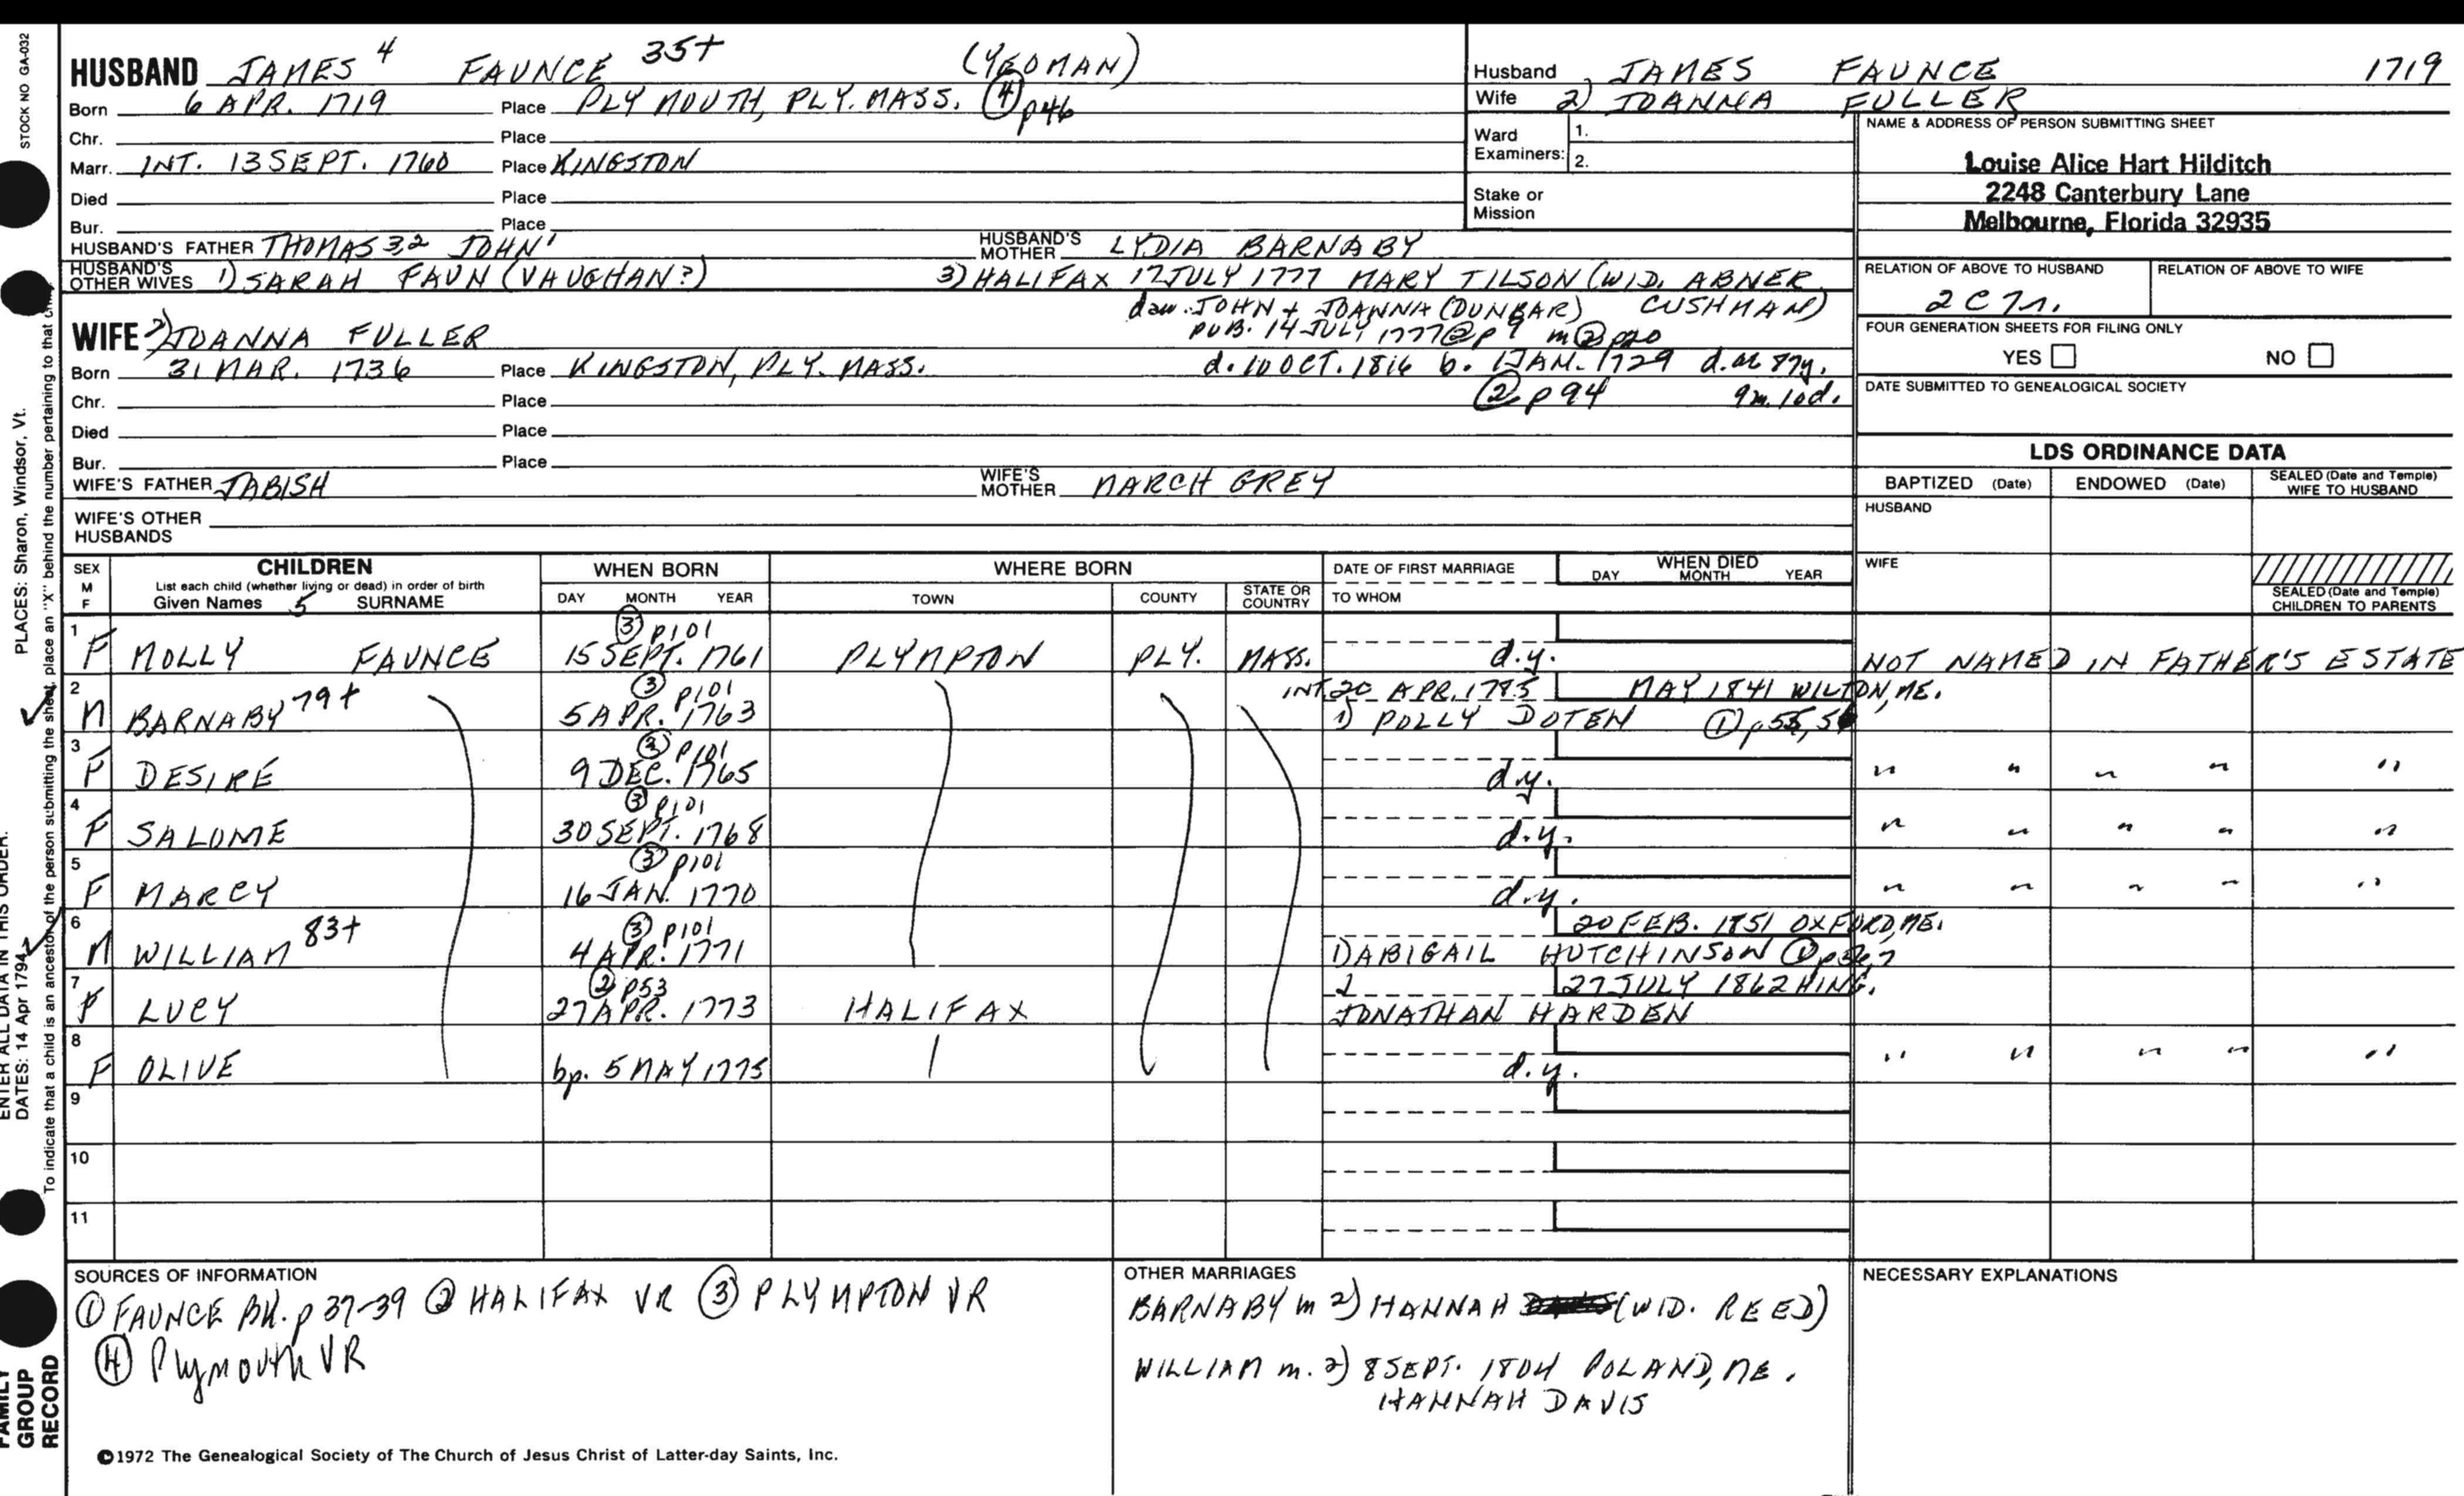 HUSBAND JAMES 4 FAUNCE 35+ (YEOMAN)
Born 6 APR. 1719 Place PLYMOUTH, PLY. MASS. ④ p46
Chr. Place
Marr. INT. 13 SEPT. 1760 Place KINGSTON
Died Place
Bur. Place
HUSBAND'S FATHER THOMAS 3,2 JOHN 1 HUSBAND'S MOTHER LYDIA BARNABY
HUSBAND'S OTHER WIVES 1) SARAH FAUN (VAUGHAN?) 3) HALIFAX 17 JULY 1777 MARY TILSON (WID. ABNER
dau. JOHN + JOANNA (DUNBAR) CUSHMAN)
PUB. 14 JULY, 1777 @ p 9 m ② p20
WIFE 2) JOANNA FULLER
d. 10 OCT. 1816 b. 1 JAN. 1729 d. ae 87y.
9m. 10d.
② p 94
Born 31 MAR. 1736 Place KINGSTON, PLY. MASS.
Chr. Place
Died Place
Bur. Place
WIFE'S FATHER JABISH WIFE'S MOTHER MARCH GREY
WIFE'S OTHER HUSBANDS
Husband JAMES FAUNCE 1719
Wife 2) JOANNA FULLER
Ward Examiners: 1.
2.
Stake or Mission
NAME & ADDRESS OF PERSON SUBMITTING SHEET
Louise Alice Hart Hilditch
2248 Canterbury Lane
Melbourne, Florida 32935
RELATION OF ABOVE TO HUSBAND RELATION OF ABOVE TO WIFE
2 C 7 r.
FOUR GENERATION SHEETS FOR FILING ONLY
YES NO
DATE SUBMITTED TO GENEALOGICAL SOCIETY
LDS ORDINANCE DATA
BAPTIZED (Date) ENDOWED (Date) SEALED (Date and Temple) WIFE TO HUSBAND
HUSBAND
WIFE
SEALED (Date and Temple) CHILDREN TO PARENTS
SEX M F CHILDREN WHEN BORN WHERE BORN DATE OF FIRST MARRIAGE WHEN DIED
List each child (whether living or dead) in order of birth
Given Names 5 SURNAME DAY MONTH YEAR TOWN COUNTY STATE OR COUNTRY TO WHOM DAY MONTH YEAR
③ p101
1 F MOLLY FAUNCE 15 SEPT. 1761 PLYMPTON PLY. MASS. d.y. NOT NAMED IN FATHER'S ESTATE
③ p101 INT. 20 APR. 1785 MAY 1841 WILTON, ME.
2 M BARNABY 79+ 5 APR. 1763 1) POLLY DOTEN ① p 55,
③ p101
3 F DESIRE 9 DEC. 1765 d.y. " " " " "
③ p101
4 F SALOME 30 SEPT. 1768 d.y. " " " " "
③ p101
5 F MARCY 16 JAN. 1770 d.y. " " " " "
③ p101 20 FEB. 1851 OXFORD, ME.
6 M WILLIAM 83+ 4 APR. 1771 1) ABIGAIL HUTCHINSON ①
② p53 27 JULY 1862 HING.
7 F LUCY 27 APR. 1773 HALIFAX JONATHAN HARDEN
8 F OLIVE bp. 5 MAY 1775 d.y. " " " " "
9
10
11
SOURCES OF INFORMATION
① FAUNCE BK. p 37-39 ② HALIFAX VR ③ PLYMPTON VR
④ Plymouth VR
OTHER MARRIAGES
BARNABY m 2) HANNAH (WID. REED)
WILLIAM m. 2) 8 SEPT. 1804 POLAND, ME.
HANNAH DAVIS
NECESSARY EXPLANATIONS
©1972 The Genealogical Society of The Church of Jesus Christ of Latter-day Saints, Inc.
STOCK NO GA-032
PLACES: Sharon, Windsor, Vt.
ENTER ALL DATA IN THIS ORDER.
DATES: 14 Apr 1794
To indicate that a child is an ancestor of the person submitting the sheet, place an "X" behind the number pertaining to that
FAMILY GROUP RECORD